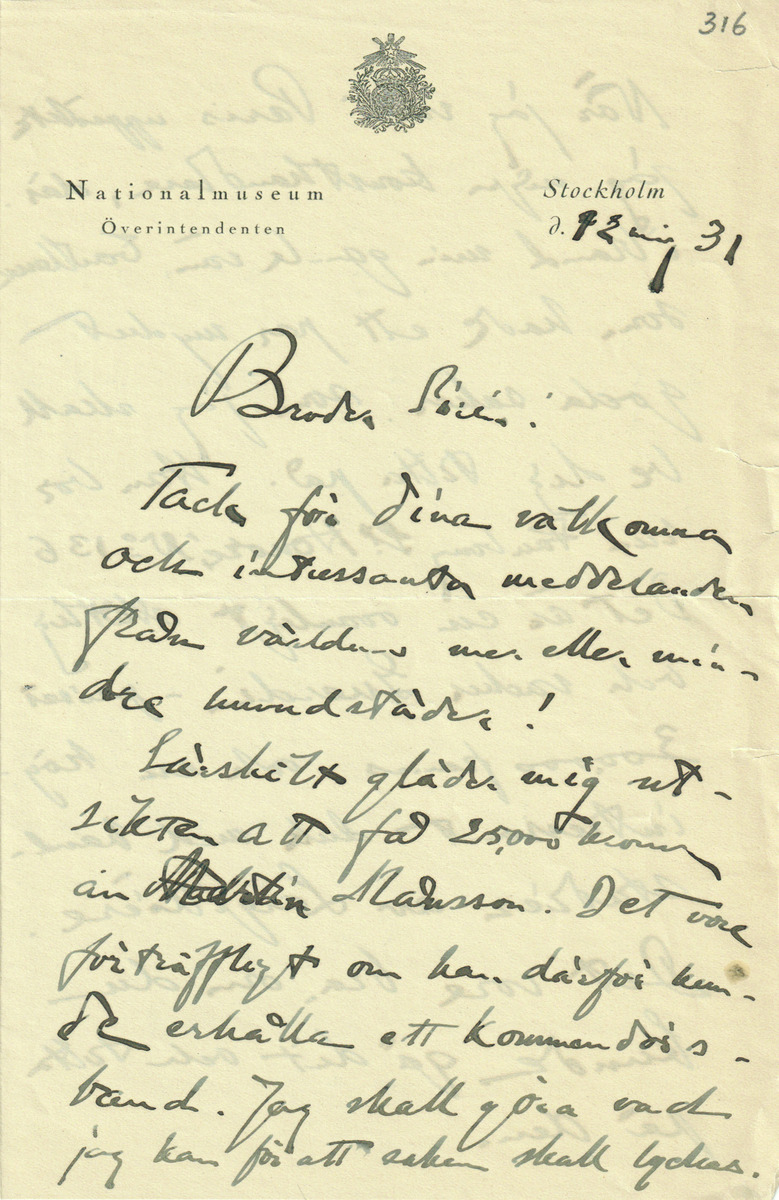 316
Nationalmuseum
Överintendenten
Stockholm
d. 12 maj 31
Broder Sirén!
Tack för dina välkomna
och intressanta meddelanden
från världens mer eller min-
dre huvudstäder!
Särskilt gläder mig ut-
sikten att få 25,000 kronor
av Månsson. Det vore
förträffligt om han därför kun-
de erhålla ett kommendörs-
band. Jag skall göra vad
jag kan för att saken skall lyckas.